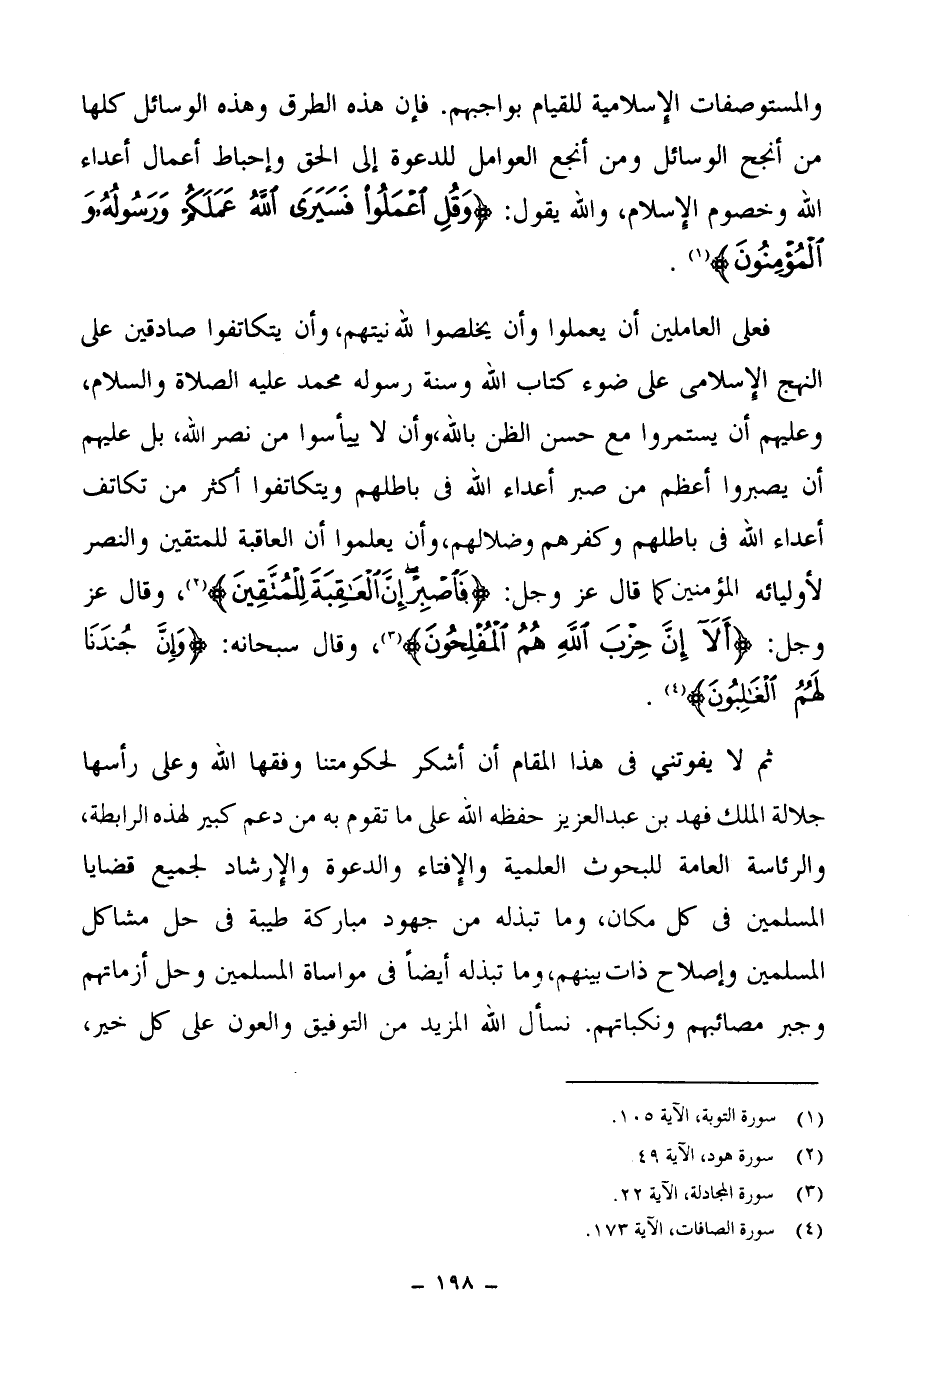 والمستوصفات الإسلامية للقيام بواجبهم. فإن هذه الطرق وهذه الوسائل كلها
من أنجح الوسائل ومن أنجع العوامل للدعوة إلى الحق وإحباط أعمال أعداء
الله وخصوم الإسلام، والله يقول: ﴿وَقُلِ ٱعْمَلُوا۟ فَسَيَرَى ٱللَّهُ عَمَلَكُمْ وَرَسُولُهُۥ وَ
ٱلْمُؤْمِنُونَ﴾(١) .
فعلى العاملين أن يعملوا وأن يخلصوا لله نيتهم، وأن يتكاتفوا صادقين على
النهج الإسلامى على ضوء كتاب الله وسنة رسوله محمد عليه الصلاة والسلام،
وعليهم أن يستمروا مع حسن الظن بالله،وأن لا ييأسوا من نصر الله، بل عليهم
أن يصبروا أعظم من صبر أعداء الله فى باطلهم ويتكاتفوا أكثر من تكاتف
أعداء الله فى باطلهم وكفرهم وضلالهم،وأن يعلموا أن العاقبة للمتقين والنصر
لأوليائه المؤمنين كما قال عز وجل: ﴿فَٱصْبِرْ ۖ إِنَّ ٱلْعَـٰقِبَةَ لِلْمُتَّقِينَ﴾(٢)، وقال عز
وجل: ﴿أَلَآ إِنَّ حِزْبَ ٱللَّهِ هُمُ ٱلْمُفْلِحُونَ﴾(٣)، وقال سبحانه: ﴿وَإِنَّ جُندَنَا
لَهُمُ ٱلْغَـٰلِبُونَ﴾(٤) .
ثم لا يفوتني فى هذا المقام أن أشكر لحكومتنا وفقها الله وعلى رأسها
جلالة الملك فهد بن عبدالعزيز حفظه الله على ما تقوم به من دعم كبير لهذه الرابطة،
والرئاسة العامة للبحوث العلمية والإفتاء والدعوة والإرشاد لجميع قضايا
المسلمين فى كل مكان، وما تبذله من جهود مباركة طيبة فى حل مشاكل
المسلمين وإصلاح ذات بينهم،وما تبذله أيضاً فى مواساة المسلمين وحل أزماتهم
وجبر مصائبهم ونكباتهم. نسأل الله المزيد من التوفيق والعون على كل خير،
(١) سورة التوبة، الآية ١٠٥.
(٢) سورة هود، الآية ٤٩
(٣) سورة المجادلة، الآية ٢٢.
(٤) سورة الصافات، الآية ١٧٣.
– ١٩٨ –